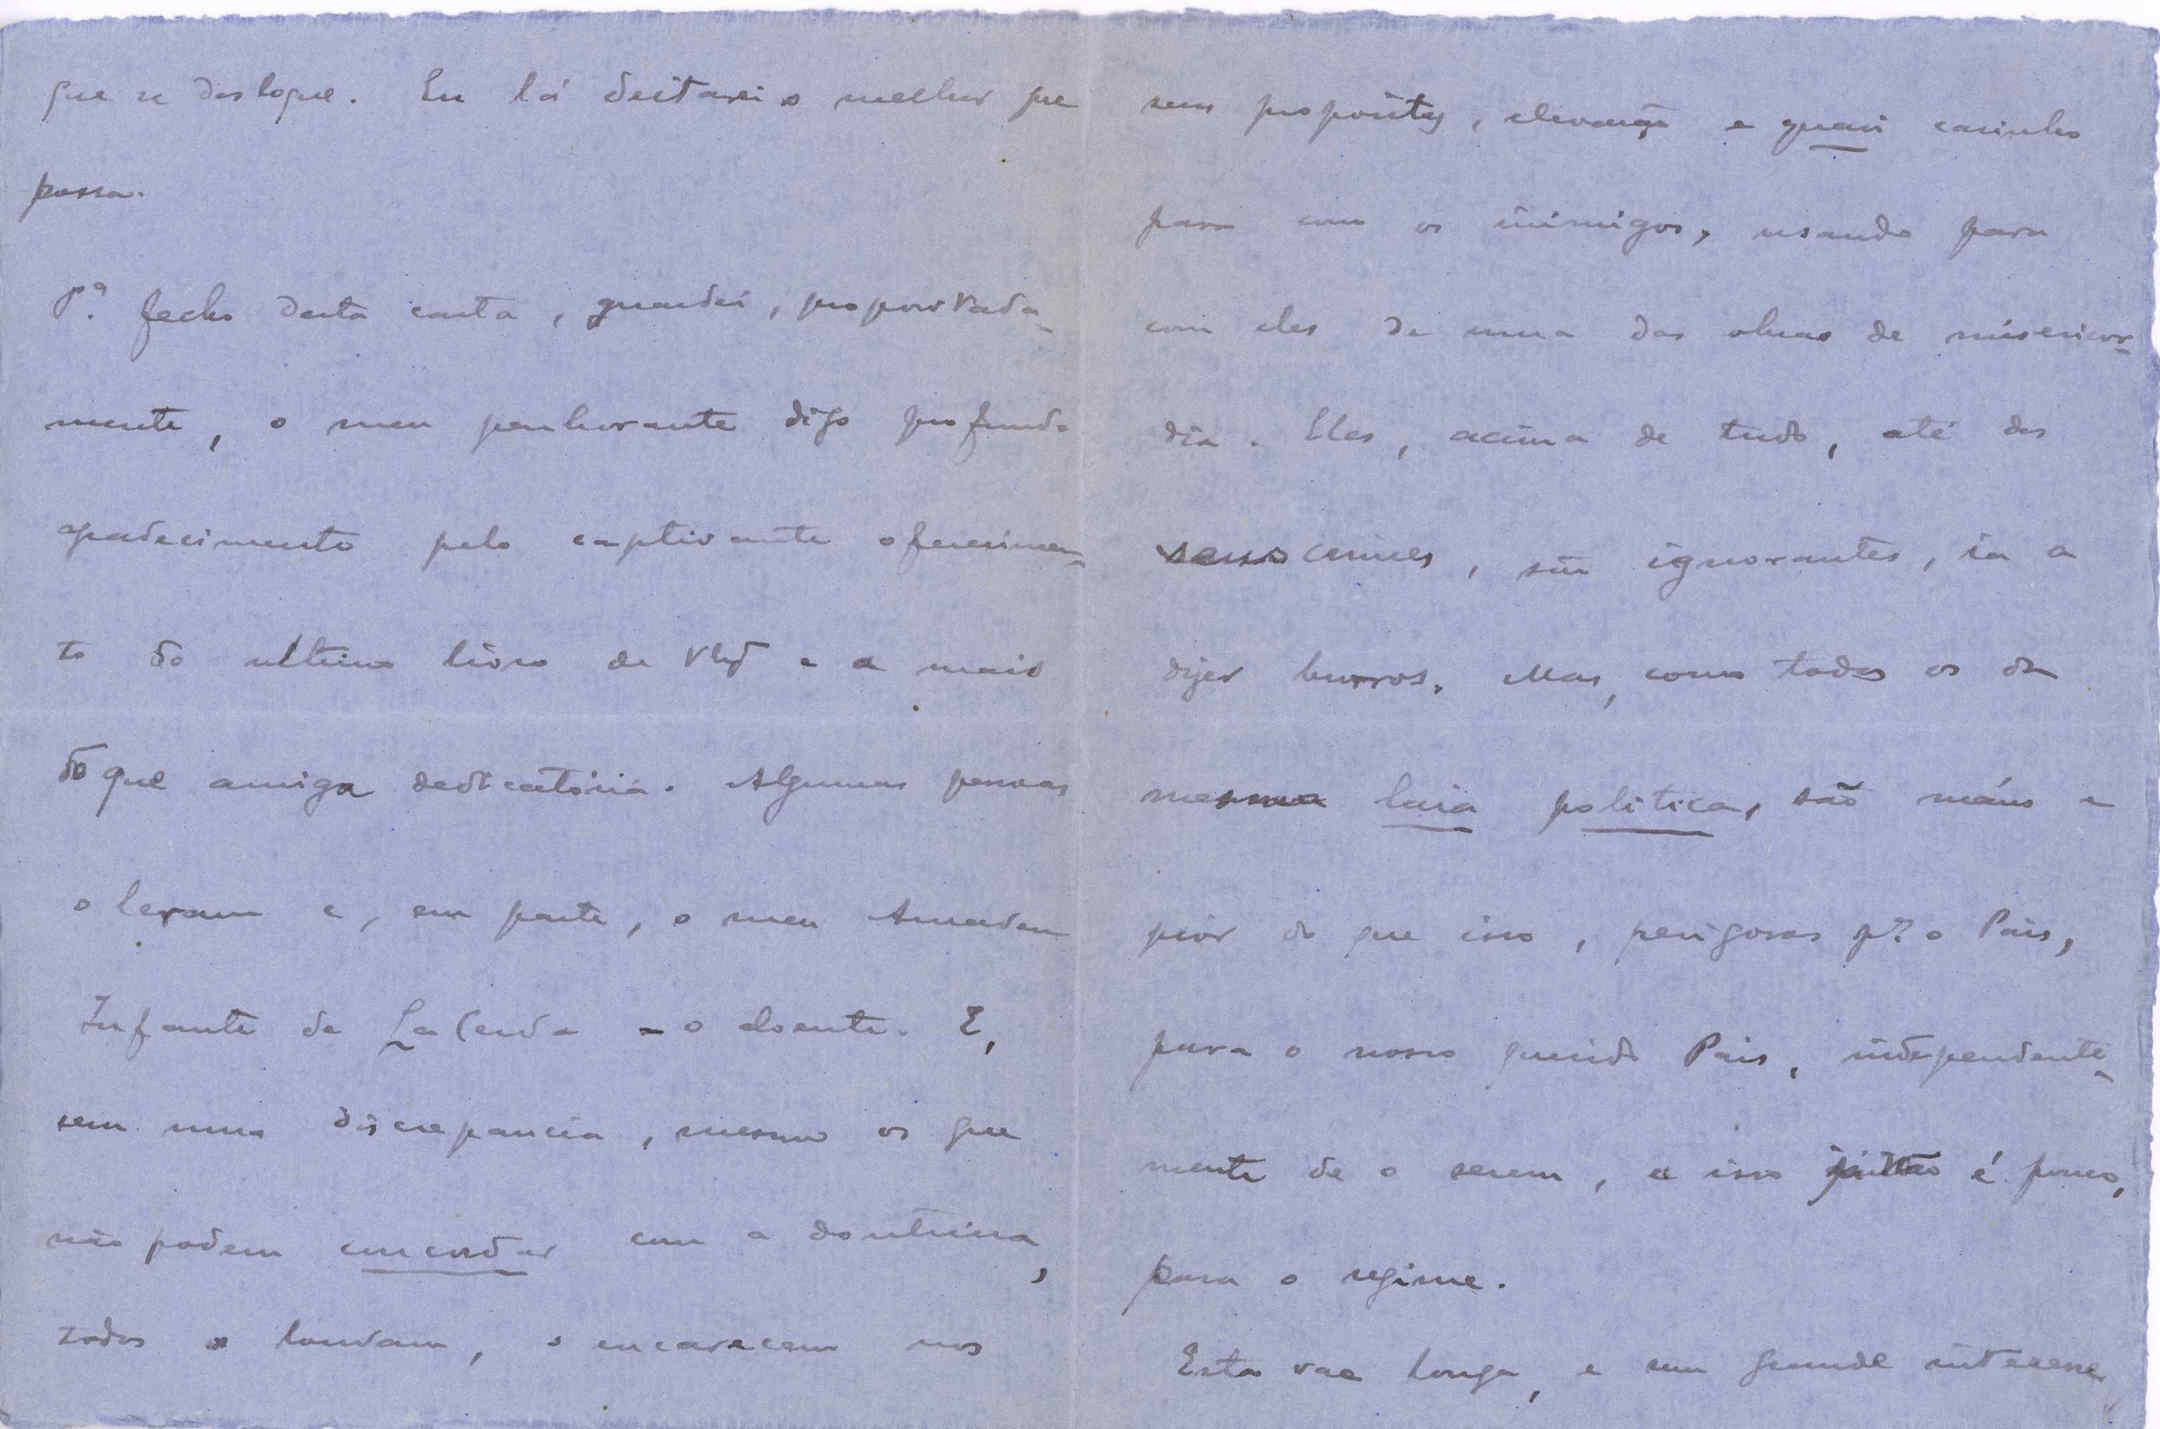 que se desloque. Eu lá deitarei o melhor que
possa.
Pª. fecho desta carta, guardei, propositada-
mente, o meu penhorante digo profundo
agradecimento pelo captivante oferecimen-
to do ultimo livro de e a mais
do que amiga dedicatória. Algumas pessoas
o leram e, em parte, o meu Amadeu
Infante de La Cerda - o doente. E,
sem uma discrepancia, mesmo os que
não podem concordar com a doutrina,
todos o louvam, o encarecem nos
seus propósitos, elevação e quasi carinho
para com os inimigos, usando para
com eles de uma das obras de misericor-
dia. Eles, acima de tudo, até dos
seus crimes, são ignorantes, ia a
dizer burros. Mas, como todos os da
mesma laia politica, são máus e
piór do que isso, perigosos pª. o Pais,
para o nosso querido Pais, independente-
mente de o serem, e isso é pouco,
para o regime.
Esta vae longa, e sem grande interesse